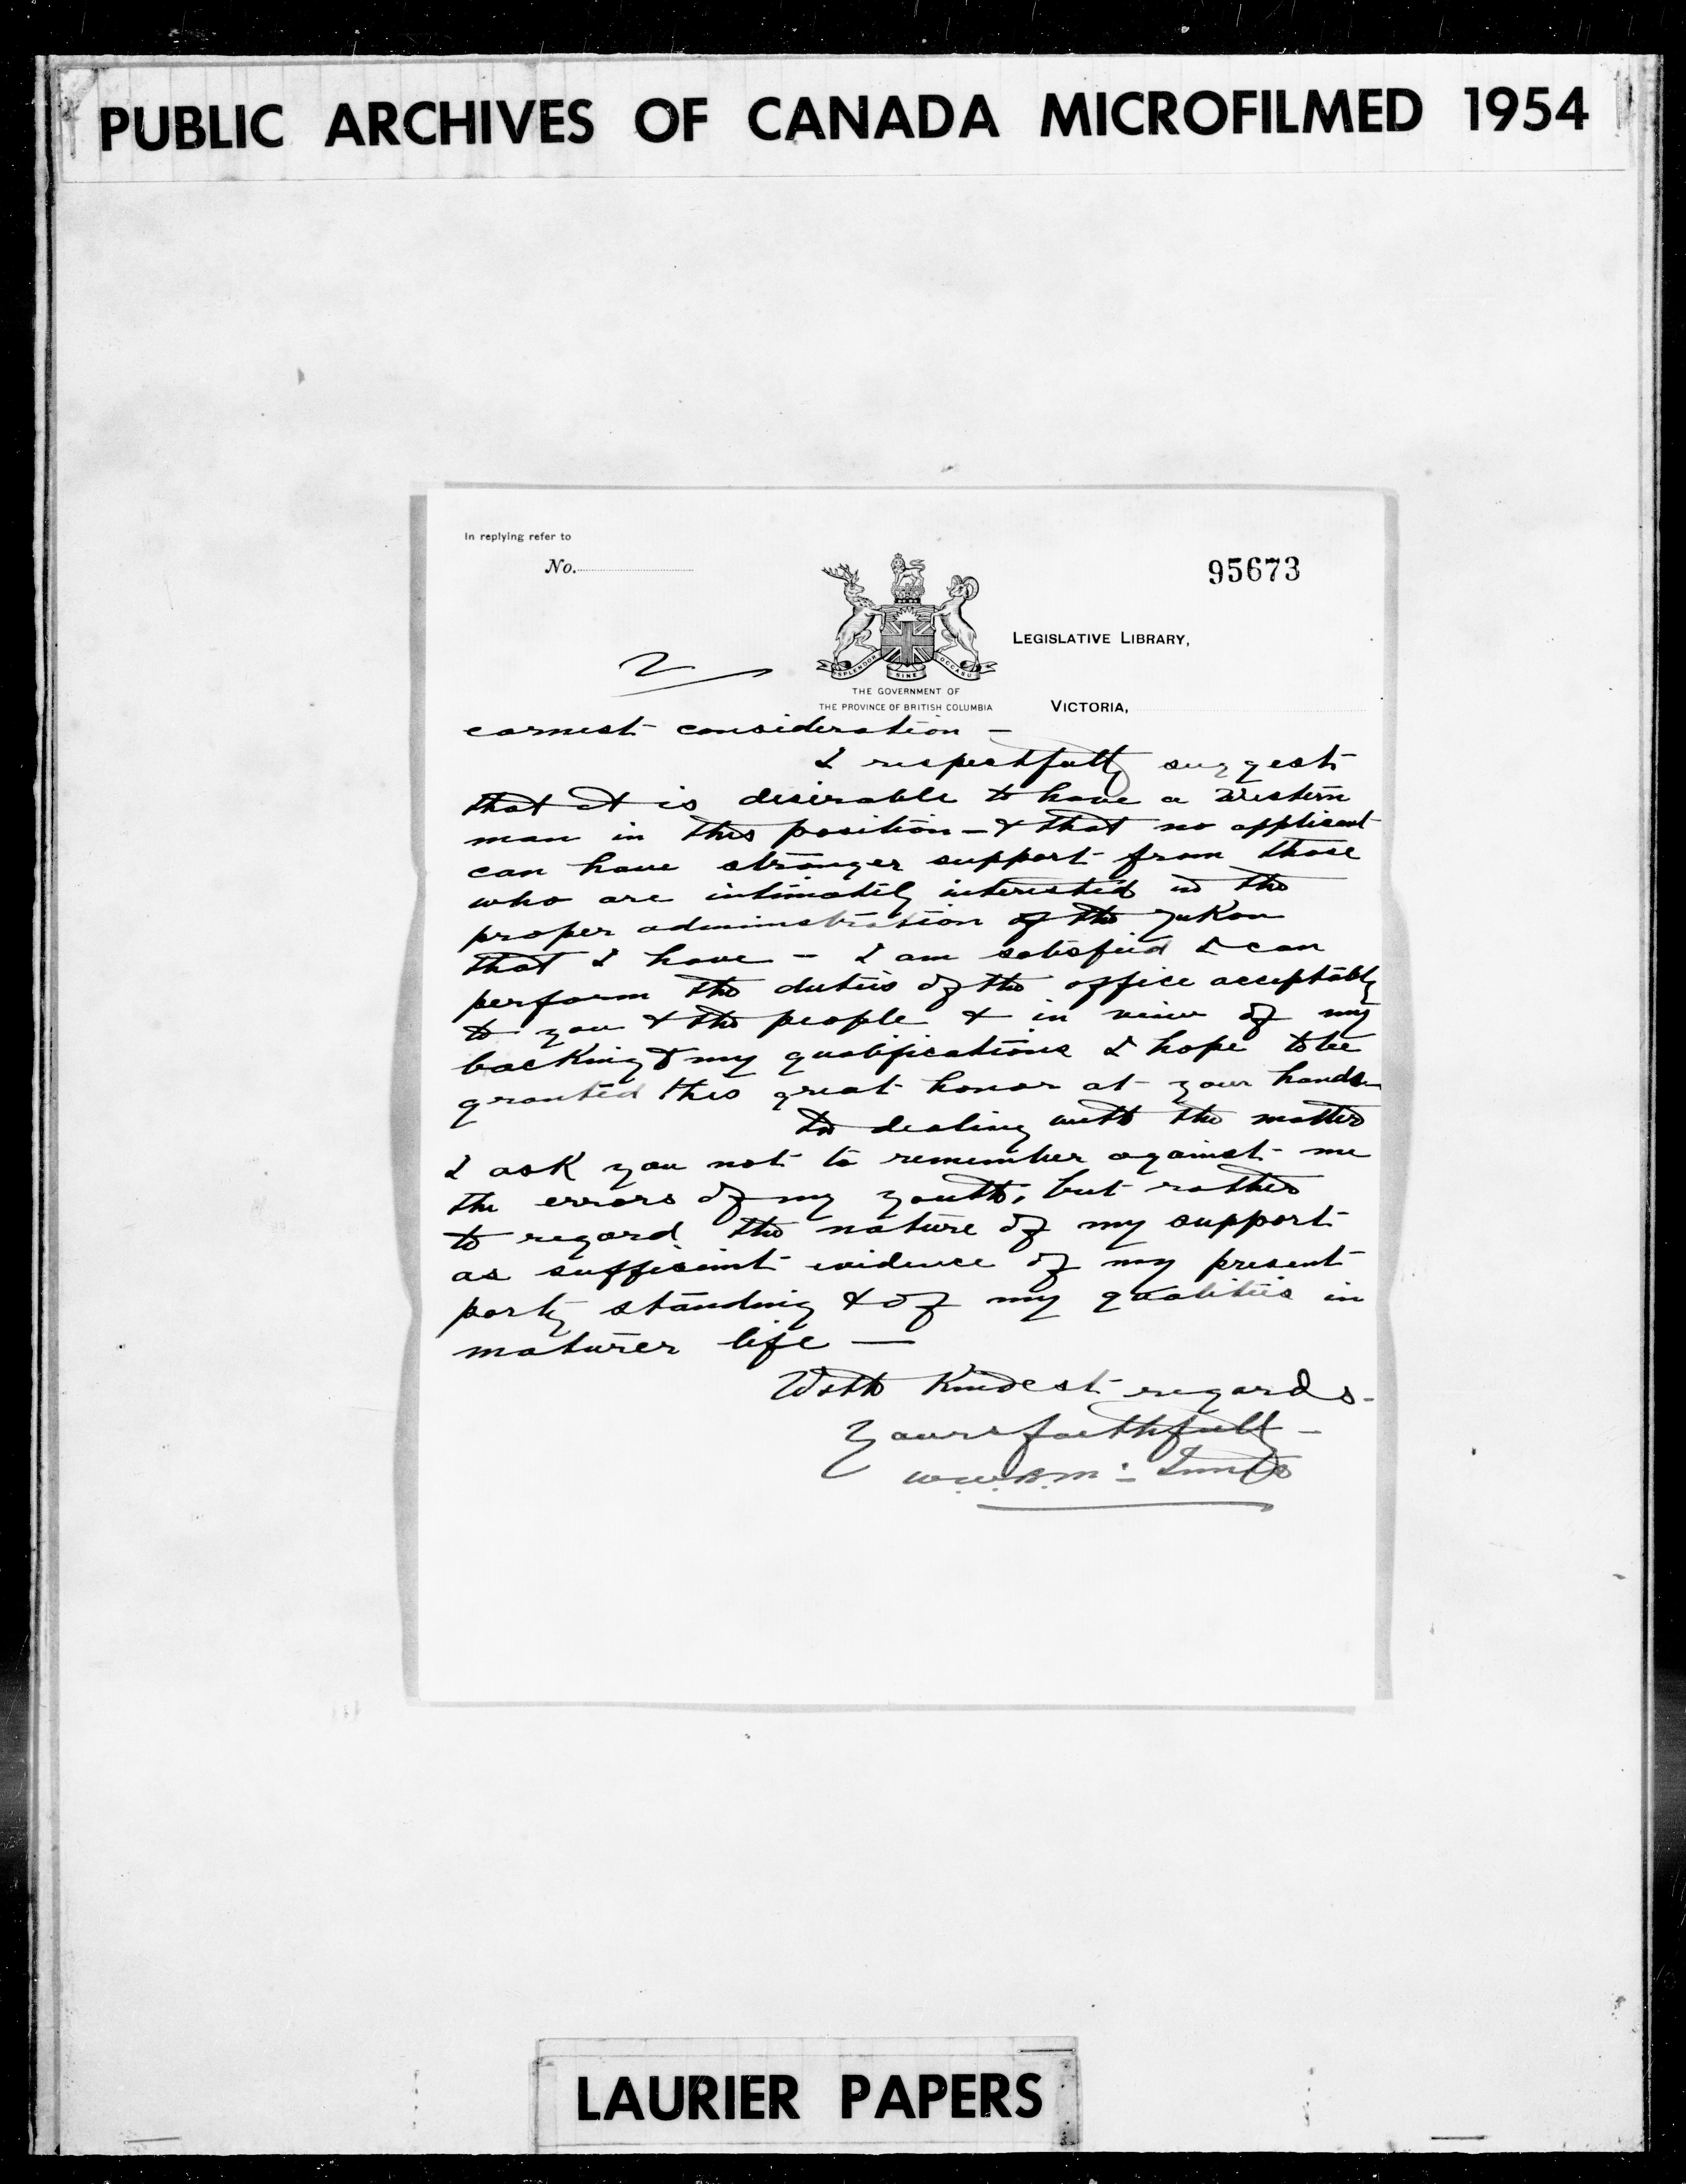 PUBLIC ARCHIVES OF CANADA MICROFILMED 1954
In replying refer to
No.
95673
LEGISLATIVE LIBRARY,
SPLENDOR SINE OCCASU
2
THE GOVERNMENT OF
THE PROVINCE OF BRITISH COLUMBIA
VICTORIA,
earnest consideration —
I respectfully suggest
that it is desirable to have a Western
man in this position — & that no applicant
can have stronger support from those
who are intimately interested in the
proper administration of the Yukon
that I have — I am satisfied I can
perform the duties of the office acceptably
to you & the people & in view of my
backing & my qualifications I hope to be
granted this great honor at your hands —
In dealing with the matter
I ask you not to remember against me
the errors of my youth, but rather
to regard the nature of my support
as sufficient evidence of my present
party standing & of my qualities in
maturer life —
With Kindest regards —
Yours faithfully —
W.W.B. McInnes
LAURIER PAPERS